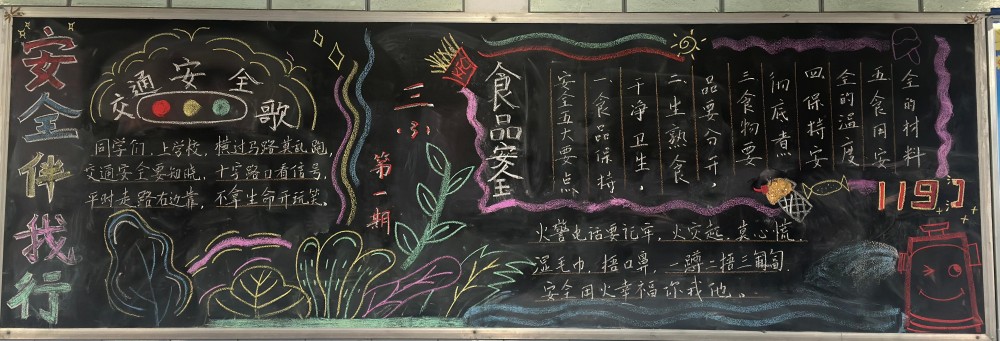 安全伴我行
交通安全歌
同学们,上学校,横过马路莫乱跑,
交通安全要知晓,十字路口看信号,
平时走路右边靠,不拿生命开玩笑。
三
第一期
KFC
食品安全
安全五大要点
一、食品保持
干净卫生。
二、生熟食
品要分开。
三、食物要
底煮
四、保持安
全的温度
五、食用安
全的材料
119
火警电话要记牢,火灾起,莫心慌,
湿毛巾,捂口鼻,二捂三匍匐.
安全用火幸福你我他。